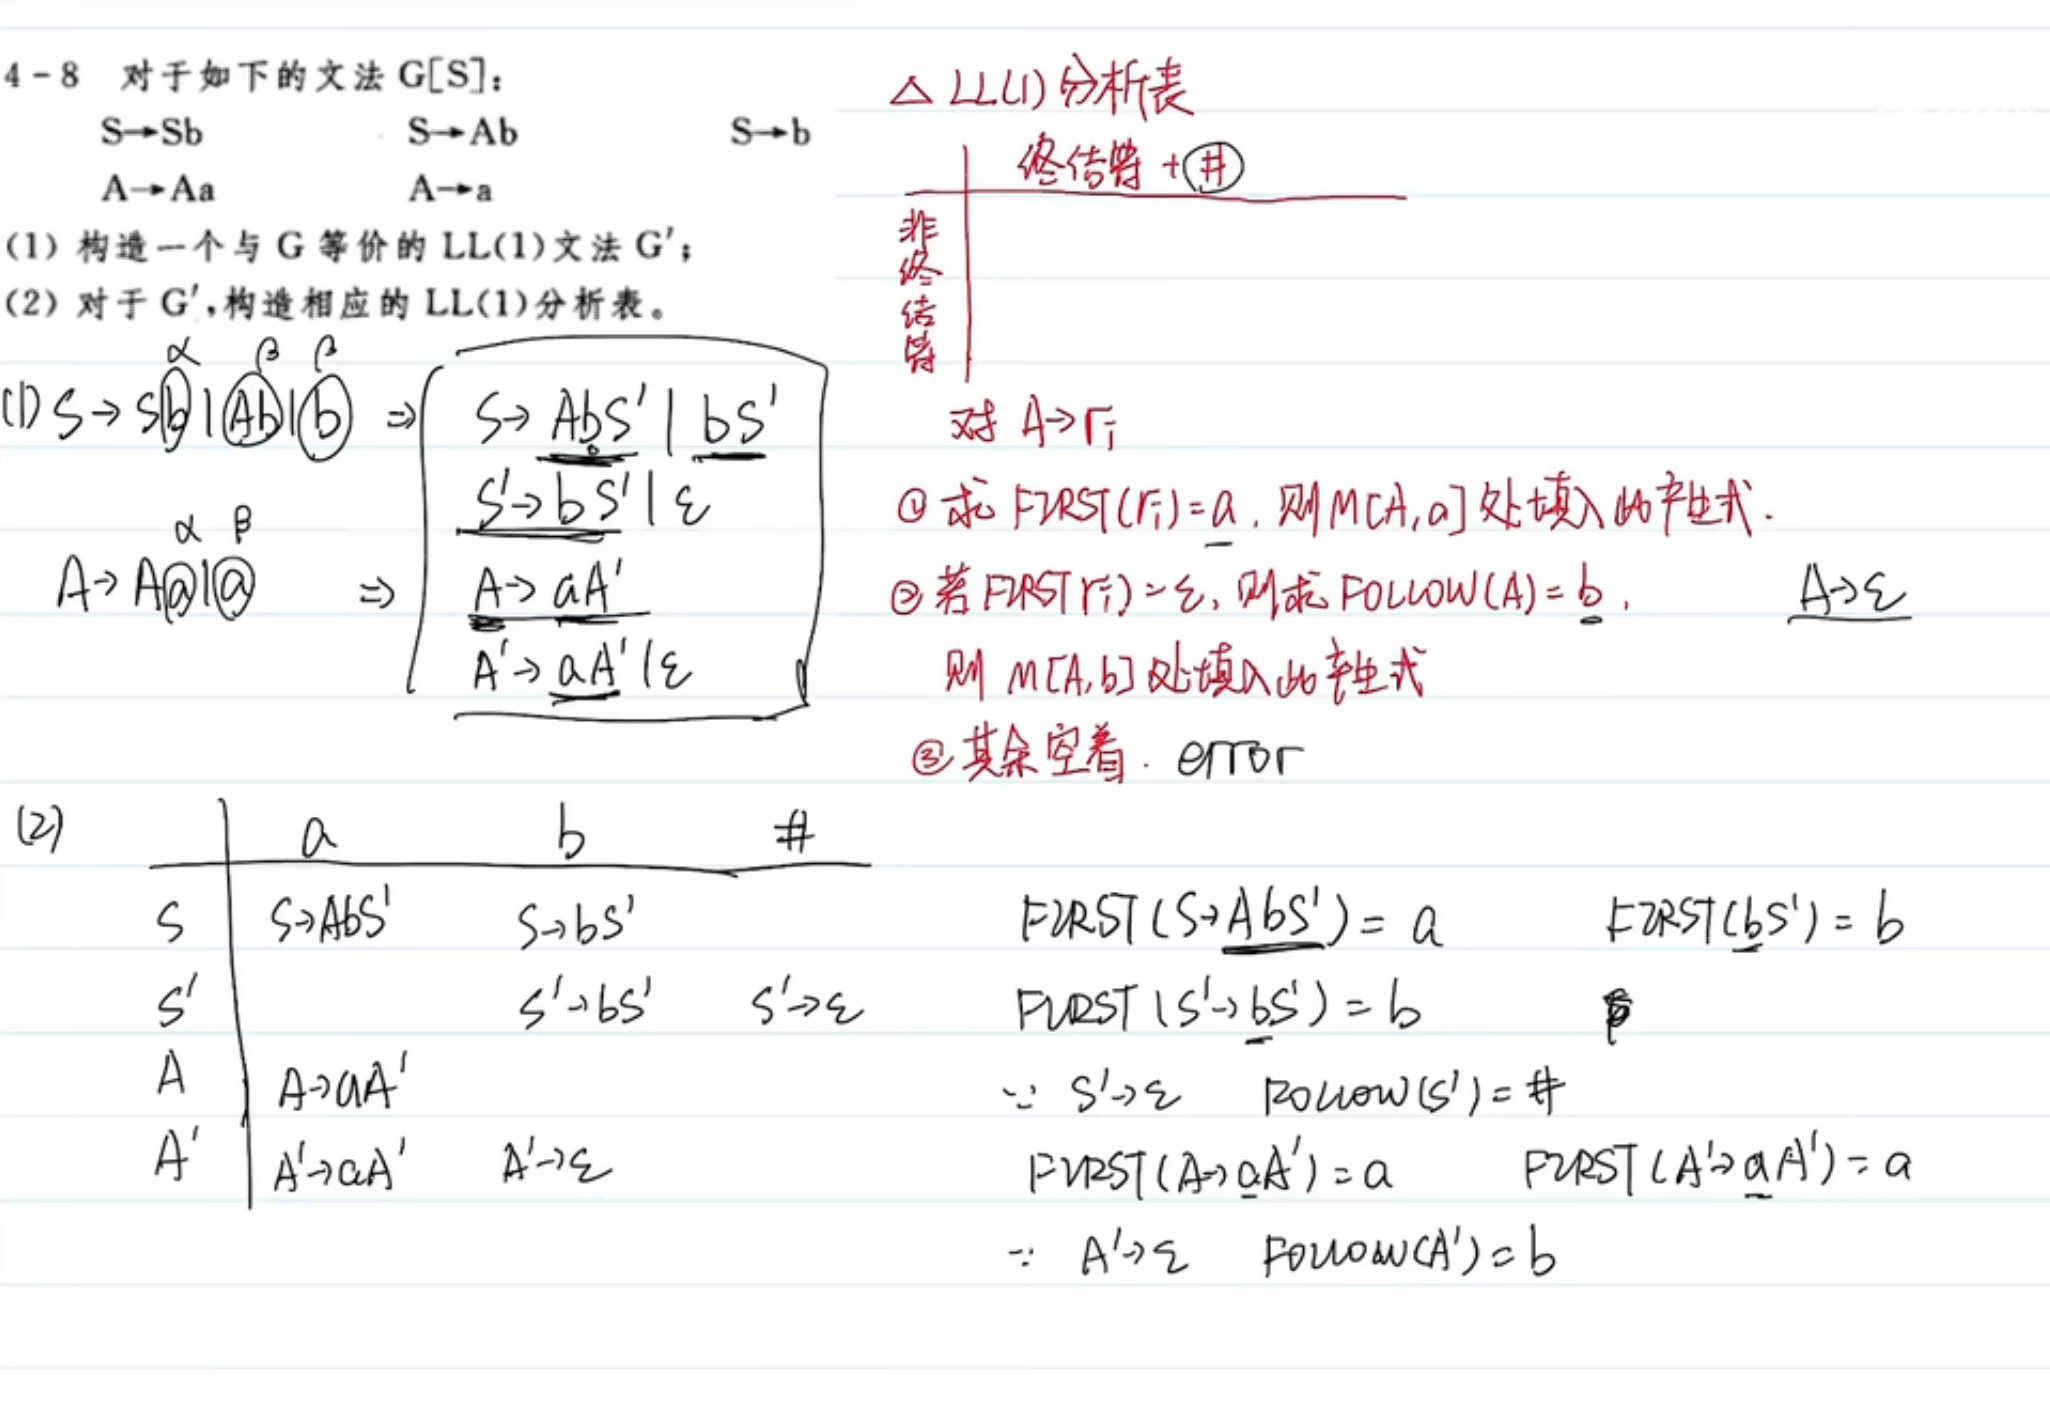 4-8 对于如下的文法 G[S]:
S→Sb S→Ab S→b
A→Aa A→a
(1) 构造一个与 G 等价的 LL(1)文法 G′;
(2) 对于 G′,构造相应的 LL(1)分析表。
α β β
(1) S→Sb|Ab|b ⇒ S→AbS'|bS'
S'→bS'|ε
α β
A→Aa|a ⇒ A→aA'
A'→aA'|ε
△ LL(1)分析表
终结符+#
非终结符
对 A→ri
① 求 FIRST(ri)=a, 则M[A,a]处填入此产生式.
② 若FIRST(ri)=ε, 则求FOLLOW(A)=b, A→ε
则 M[A,b]处填入此产生式
③ 其余空着. error
(2) a b #
S S→AbS' S→bS'
S' S'→bS' S'→ε
A A→aA'
A' A'→aA' A'→ε
FIRST(S→AbS')=a FIRST(bS')=b
FIRST(S'→bS')=b
∵ S'→ε FOLLOW(S')=#
FIRST(A→aA')=a FIRST(A'→aA')=a
∵ A'→ε FOLLOW(A')=b